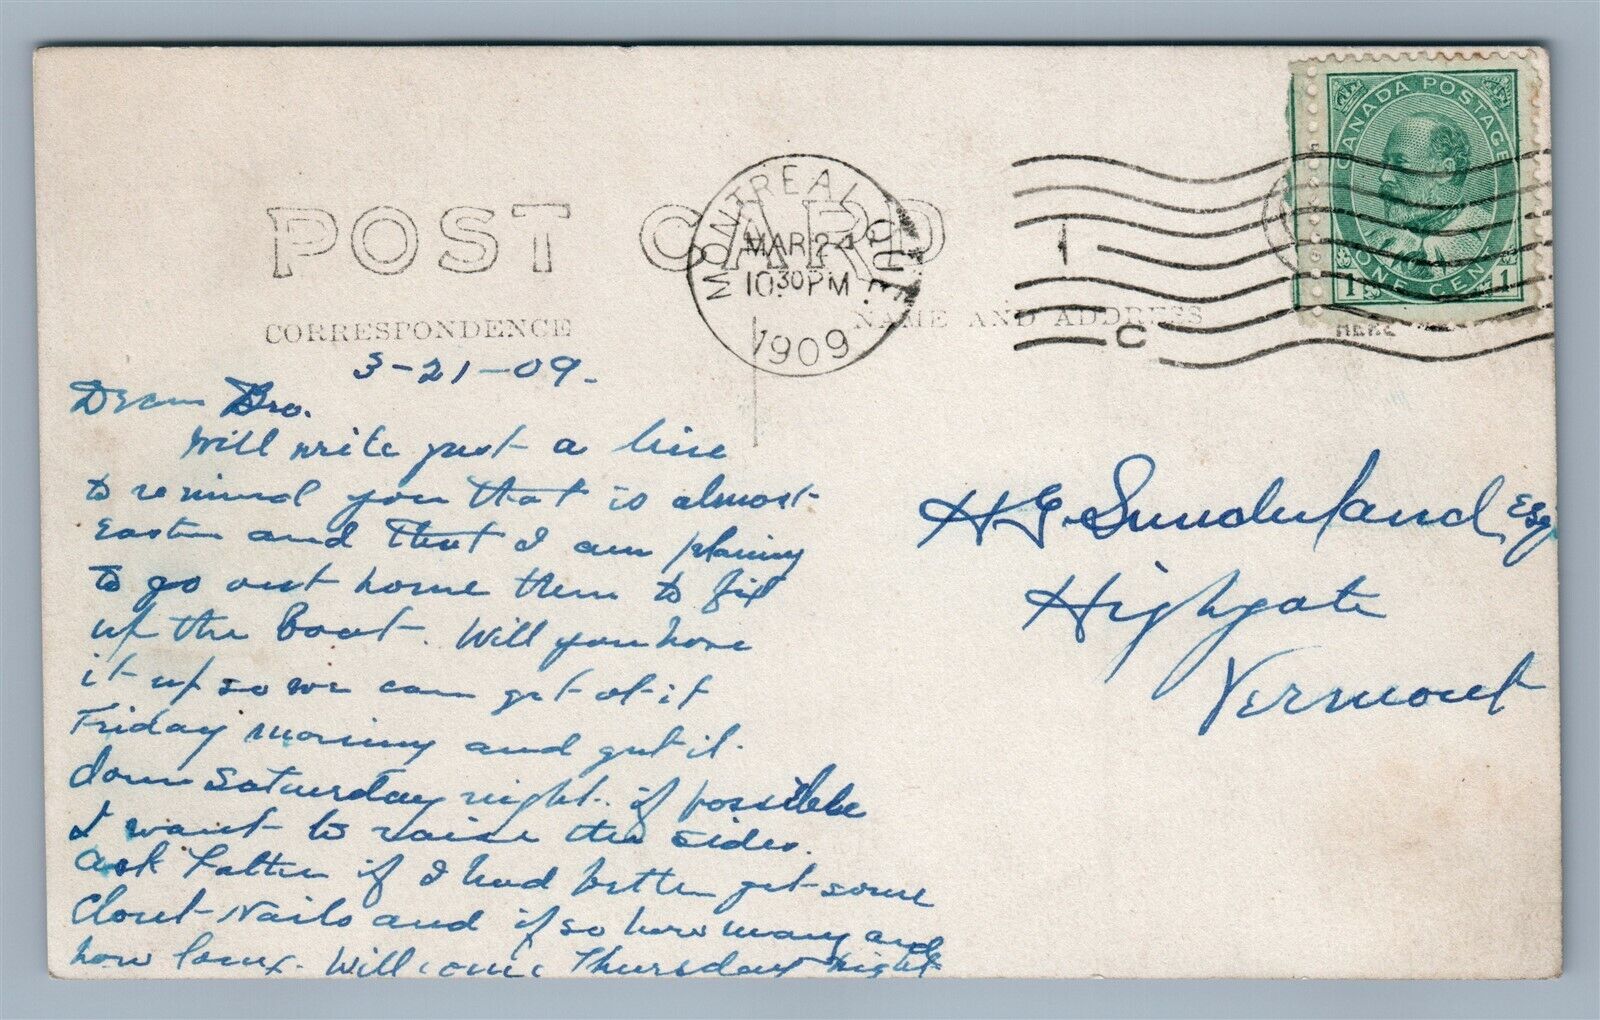 POST CARD
CORRESPONDENCE
NAME AND ADDRESS
HERE
MONTREAL QUE.
MAR 24
10.30 PM
1909
1
C
CANADA POSTAGE
1 ONE CENT 1
3-21-09.
Dear Bro.
Will write just a line
to remind you that is almost
Easter and that I am planing
to go out home then to fix
up the Boat. Will you have
it up so we can get at it
Friday morning and get it
down Saturday night. if possible
I want to raise the sides.
Ask Father if I had better get some
Clout Nails and if so how many and
how long. Will come Thursday night
H G Sunderland, Esq
Highgate
Vermont